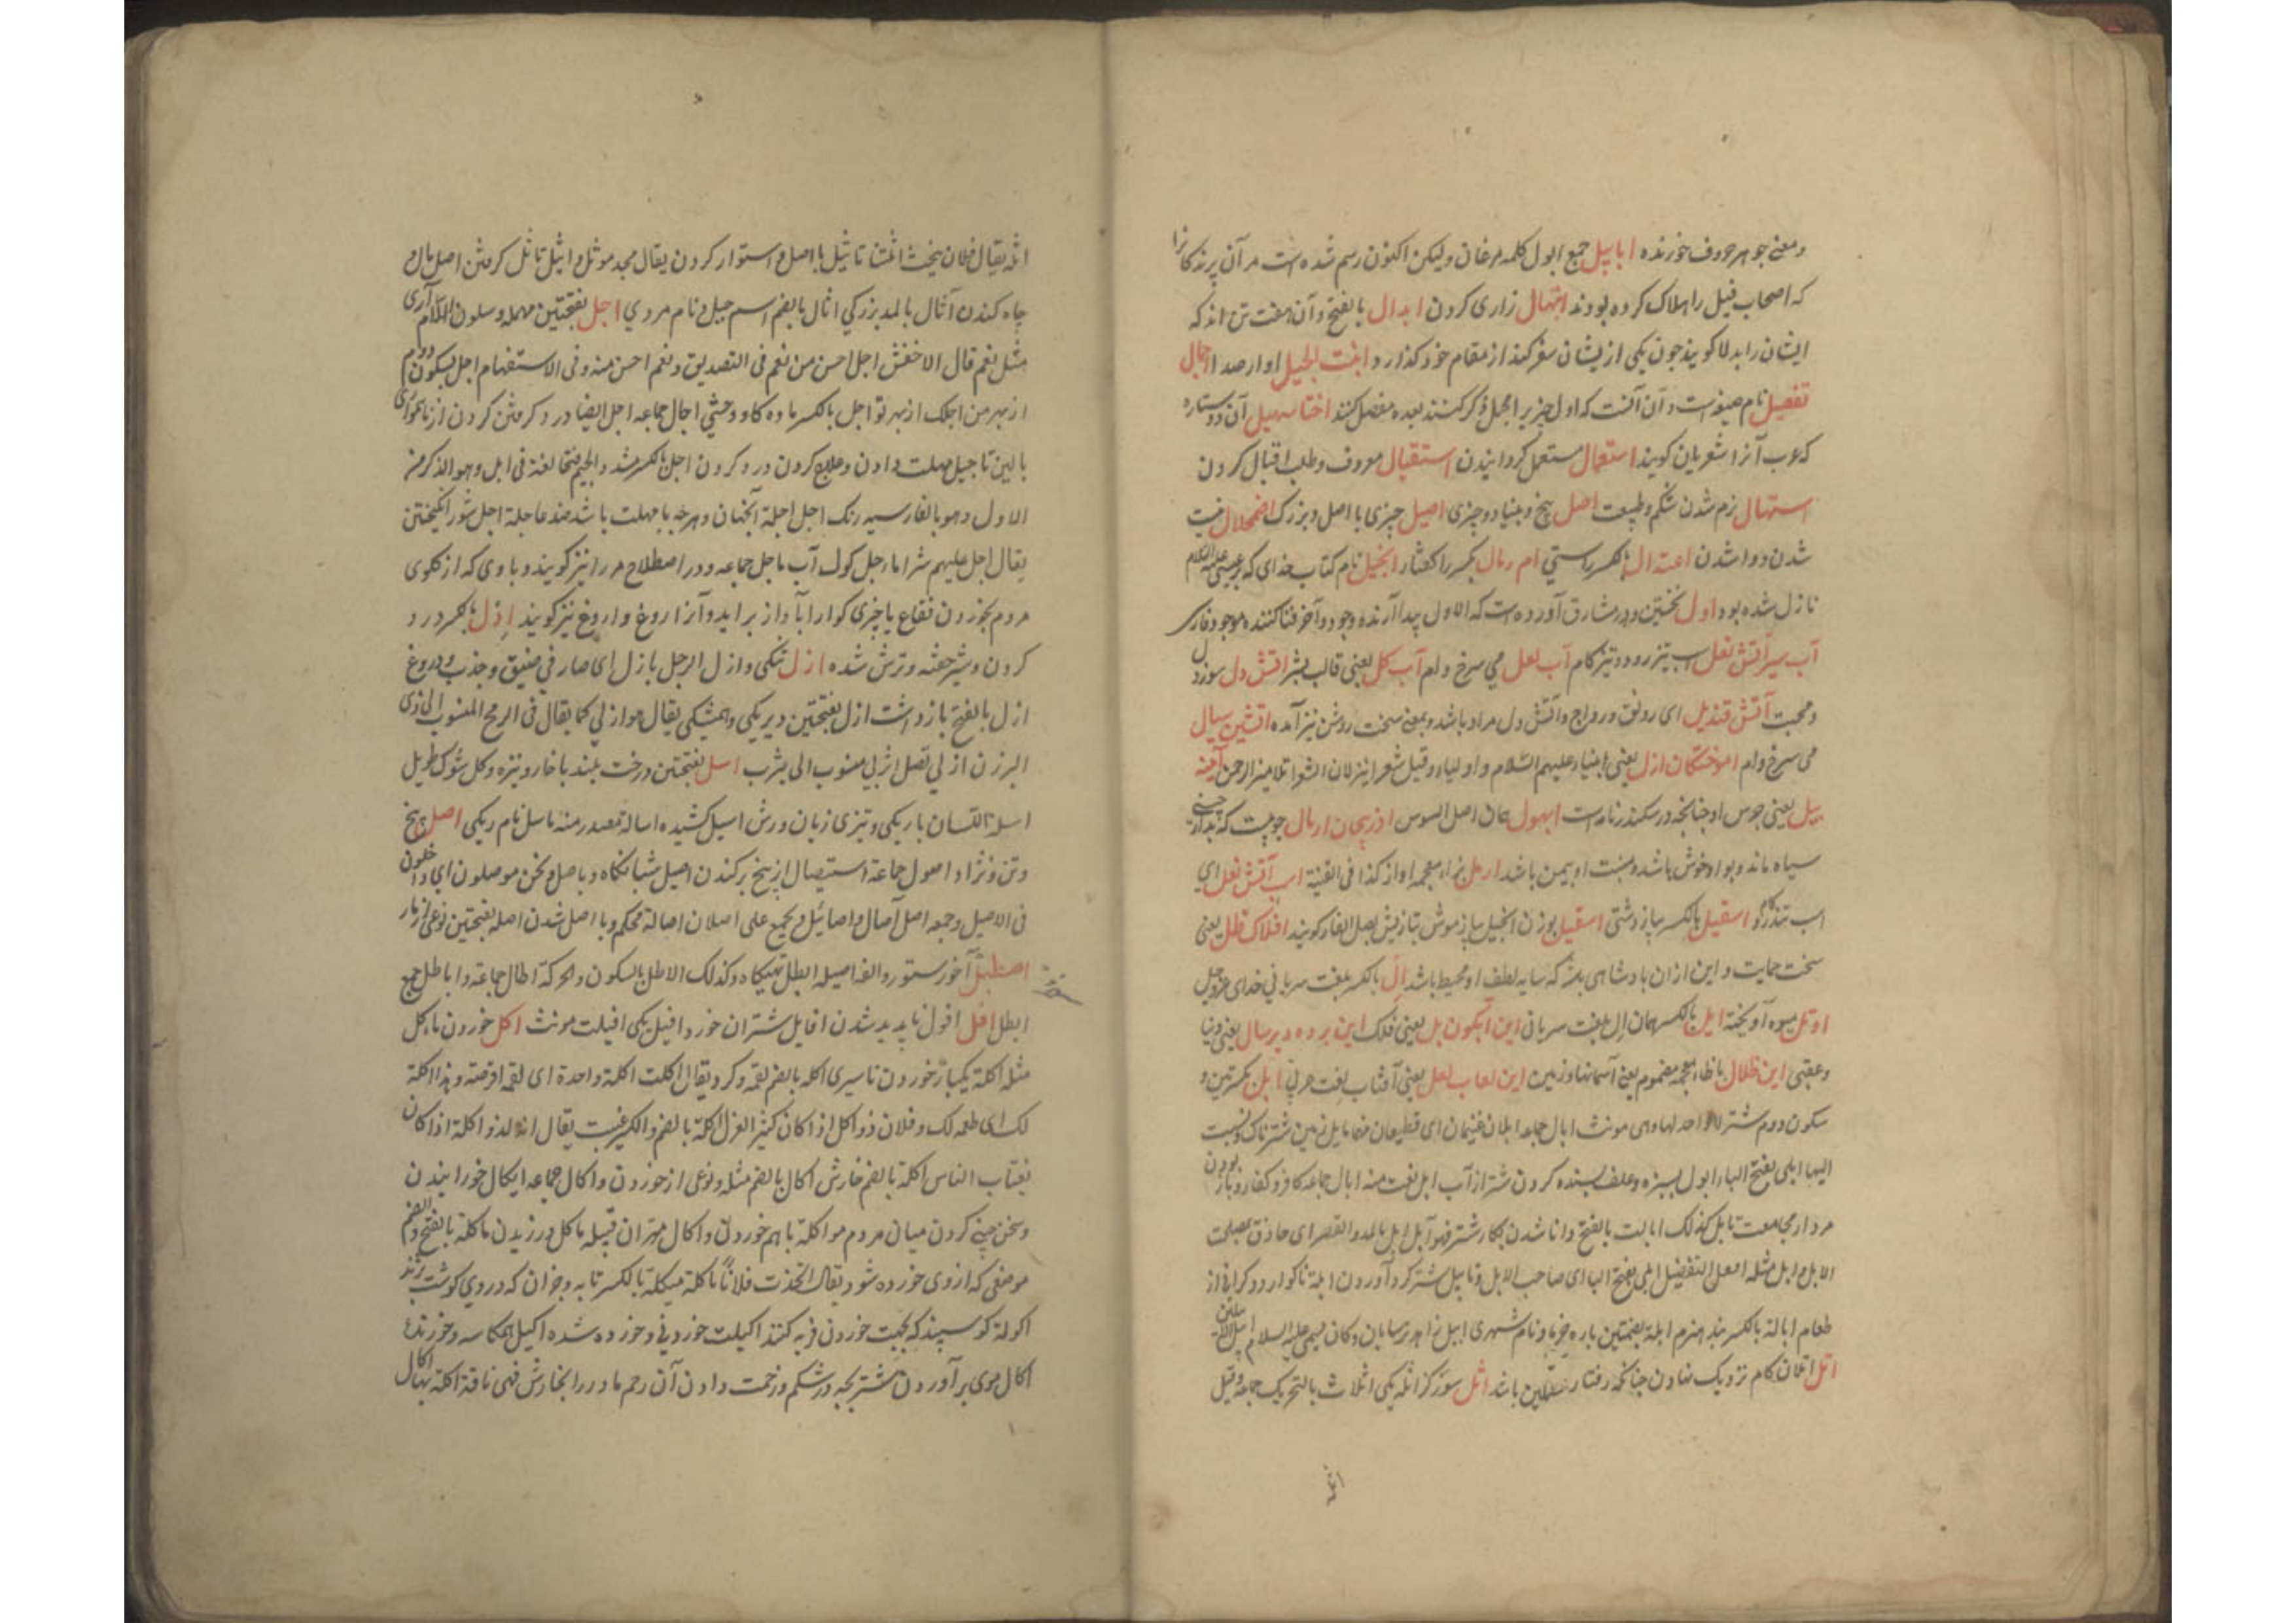 ومعنی جوهر حروف خورنده ابابیل جمع ابول کلمه مرغان ولیکن اکنون رسم شده است مر آن پرندکانرا
که اصحاب فیل را هلاک کرده بودند ابتهال زاری کردن ابدال بالفتح وآن هفت تن اند که
ایشان را بدلا کویند چون یکی ازیشان سفر کند از مقام خود کذارد ابنت الجبل اوا رصدا اجمال
تفصیل نام صیغه است وآن آنست که اول چیزیرا مجمل ذکر کنند بعده مفصل کنند اختا سهیل آن دو ستاره
که عرب آنرا شعریان کویند استعمال مستعمل کردانیدن استقبال معروف وطلب اقبال کردن
استهال نرم شدن شکم وطبیعت اصل بیخ وبنیاد وچیزی اصیل چیزی با اصل وبزرک اضمحلال نیست
شدن ووا شدن اعتدال بالکسر راستی ام رمال بکسر را کفتار انجیل نام کتاب خدای که بر عیسی علیه السلام
نازل شده بود اول نخستین ودر مشارق آورده است که الاول پیدا آرنده وجود وآخر فنا کننده موجود فارسی
آب سیر آتش نعل اسب تیز رو وتیز کام آب لعل می سرخ وام آب کل یعنی قالب بشر آتش دل سوز دل
ومحبت آتش قندیل ای رونق ورواج وآتش دل مراد باشد وبمعنی سخت روشن نیز آمده آتشین سیال
می سرخ وام آموختکان ازل یعنی انبیاء علیهم السلام واولیاء وقیل شعرا نیز لان الشعراء تلامیذ الرحمن آینه
پیل یعنی جرس او چنانچه در سکندرنامه است ابهول همان اصل السوس اذربیجان ارمال چوبیست که بدارچینی
سیاه ماند وبوا خوش باشد ومنبت او بیمن باشد ارمل بزاء معجمه آواز کذا فی القنیة اسب آتش نعل ای
اسب تندرو کام اسقیل بالکسر پیاز دشتی اسقیل بوزن انجیل پیاز موش بتازیش بصل الفار کویند افلاک ظل یعنی
سخت حمایت و این از آن بادشاهی بهتر که سایه لطف او محیط باشد ال بالکسر بلغت سریانی خدای عزوجل
اوتل میوه آویخته ایل بالکسر همان ال بلغت سریانی این آبکون پل یعنی فلک این برده دیرسال یعنی دنیا
وعقبی این ظلال با ظاء معجمه مضموم یعنی آسمانها وزمین این لعاب لعل یعنی آفتاب بلغت عربی ابل بکسرتین و
سکون دوم شتر لا واحد لها وهی مونث ابال جماعه ابلان غنیمان ای قطیعان منها مابل زمین شتر ناک ونسبت
الیها ابلی بفتح الباء ابول بسبزه وعلف بسنده کردن شتر از آب ابل نعت منه ابال جماعه کافر وکفار وباز بودن
مرد از مجامعت تابل کذلک ابالت بالفتح دانا شدن بکار شتر فهو آبل ابل بالمد والقصر ای حاذق بمصلحت
الابل وابل مثله افعل التفضیل ابلی بفتح الباء ای صاحب الابل وتابیل شتر کرد آوردن ابلة ناکوارد وکرانی از
طعام ابالة بالکسر بند هیزم ابلة بضمتین باره خرما ونام شهری ابیل زاهد ترسایان وکان یسمی علیه السلام ابیل الابیلین
اتل اتلان کام نزدیک نهادن چنانکه رفتار خشمکین باشد اثل شور کز اثله یکی اثلاث بالتحریک جماعه وقیل
اثله
اثله یقال فلان ینحت اثلتنا تاثیل با اصل واستوار کردن یقال مجد موثل واثیل تاثل کرفتن اصل مال و
چاه کندن آثال بالمد بزرکی اثال بالضم اسم جبل ونام مردی اجل بفتحتین مهمله وسکون اللام آری
مثل نعم قال الاخفش اجل احسن من نعم فی التصدیق ونعم احسن منه وفی الاستفهام اجل بسکون دوم
از بهر من اجلک از بهر تو اجل بالکسر ماده کاو وحشی اجال جماعه اجل ایضا درد کرفتن کردن از ناهمواری
بالین تاجیل مهلت دادن وعلاج کردن درد کردن اجل بالکسر مشدد الجیم فتحا لغة فی ایل وهو الذکر من
الاول وهو بالفارسیه رنک اجل اجلة آنجهان وهرچه با مهلت باشد ضد عاجلة اجل شور انکیختن
یقال اجل علیهم شرا ماجل کول آب ماجل جماعه ودر اصطلاح مرا نیز کویند وبادی که از کلوی
مردم بخوردن فقاع یا چیزی کوارا بآواز برآید وآنرا اروغ واروغ نیز کویند ادل بالکسر درد
کردن وشیر خفته وترش شده ازل تنکی وازل الرجل یازل ای صار فی ضیق وجذب ودروغ
ازل بالفتح بازداشت ازل بفتحتین دیریکی وهمیشکی یقال هو ازلی کما یقال فی الرمح المنسوب الی ذی
الیزن ازلی نصل اثربی منسوب الی یثرب اسل بفتحتین درخت بلند با خار ونیزه وکل شوک طویل
اسلة اللسان باریکی وتیزی زبان ورش اسیل کشیده اسالة مصدر منه ماسل نام ریکی اصل بیخ
وتن ونژاد اصول جماعة استیصال از بیخ برکندن اصیل شبانکاه وبااصل ونحن موصلون ای داخلون
فی الاصیل وجمعه اصل آصال واصائل ویجمع علی اصلان اصالة محکم وبا اصل شدن اصله بفتحتین نوعی از مار
اصطبل آخور ستور والفه اصیله ابطل تهیکاه وکذلک الاطل بالسکون والحرکة آطال جماعة واباطل جمع
ابطل افل افول ناپدید شدن افایل شتران خورد افیل یکی افیلت مونث اکل خوردن ماکل
مثله اکلة یکبار خوردن تا سیری اکله بالضم لقمه وکرد یقال اکلت اکلة واحدة ای لقمه اقرصه وهذا اکلة
لک ای طعمه لک وفلان ذو اکل اذا کان کثیر الغزل اکلة بالضم والکسر غیبت یقال انه لذو اکلة اذا کان
یغتاب الناس اکلة بالضم خارش اکال بالضم مثله ونوعی از خوردن واکال جماعه ایکال خورانیدن
وسخن چینی کردن میان مردم مواکلة باهم خوردن واکال مهتران قبیله ماکل ورزیدن ماکلة بالفتح والضم
موضعی که ازوی خورده شود یقال اتخذت فلانا ماکلة میکلة بالکسر تابه وخوان که در وی کوشت پزند
اکولة کوسپند که بجهت خوردن فربه کنند اکیلت خوردنی وخورده شده اکیل همکاسه وخورنده
اکال موی برآوردن شتر بچه در شکم وزحمت دادن آن رحم مادر را بخارش فهی ناقة اکلة بها اکال